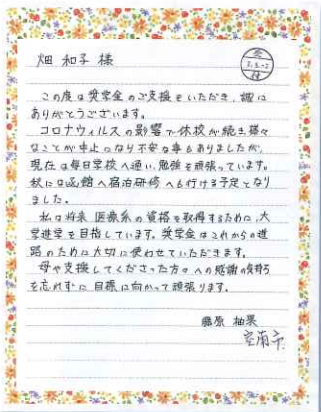 畑 和子 様
この度は奨学金のご支援をいただき、誠に
ありがとうございます。
コロナウィルスの影響で休校が続き、様々
なことが中止になり不安な事もありましたが、
現在は毎日学校へ通い、勉強を頑張っています。
秋には函館へ宿泊研修へも行ける予定となり
ました。
私は将来 医療系の資格を取得するために、大
学進学を目指しています。奨学金はこれからの進
路のために大切に使わせていただきます。
母や支援してくださった方々への感謝の気持ち
を忘れずに 目標に向かって頑張ります。
藤原 柚果